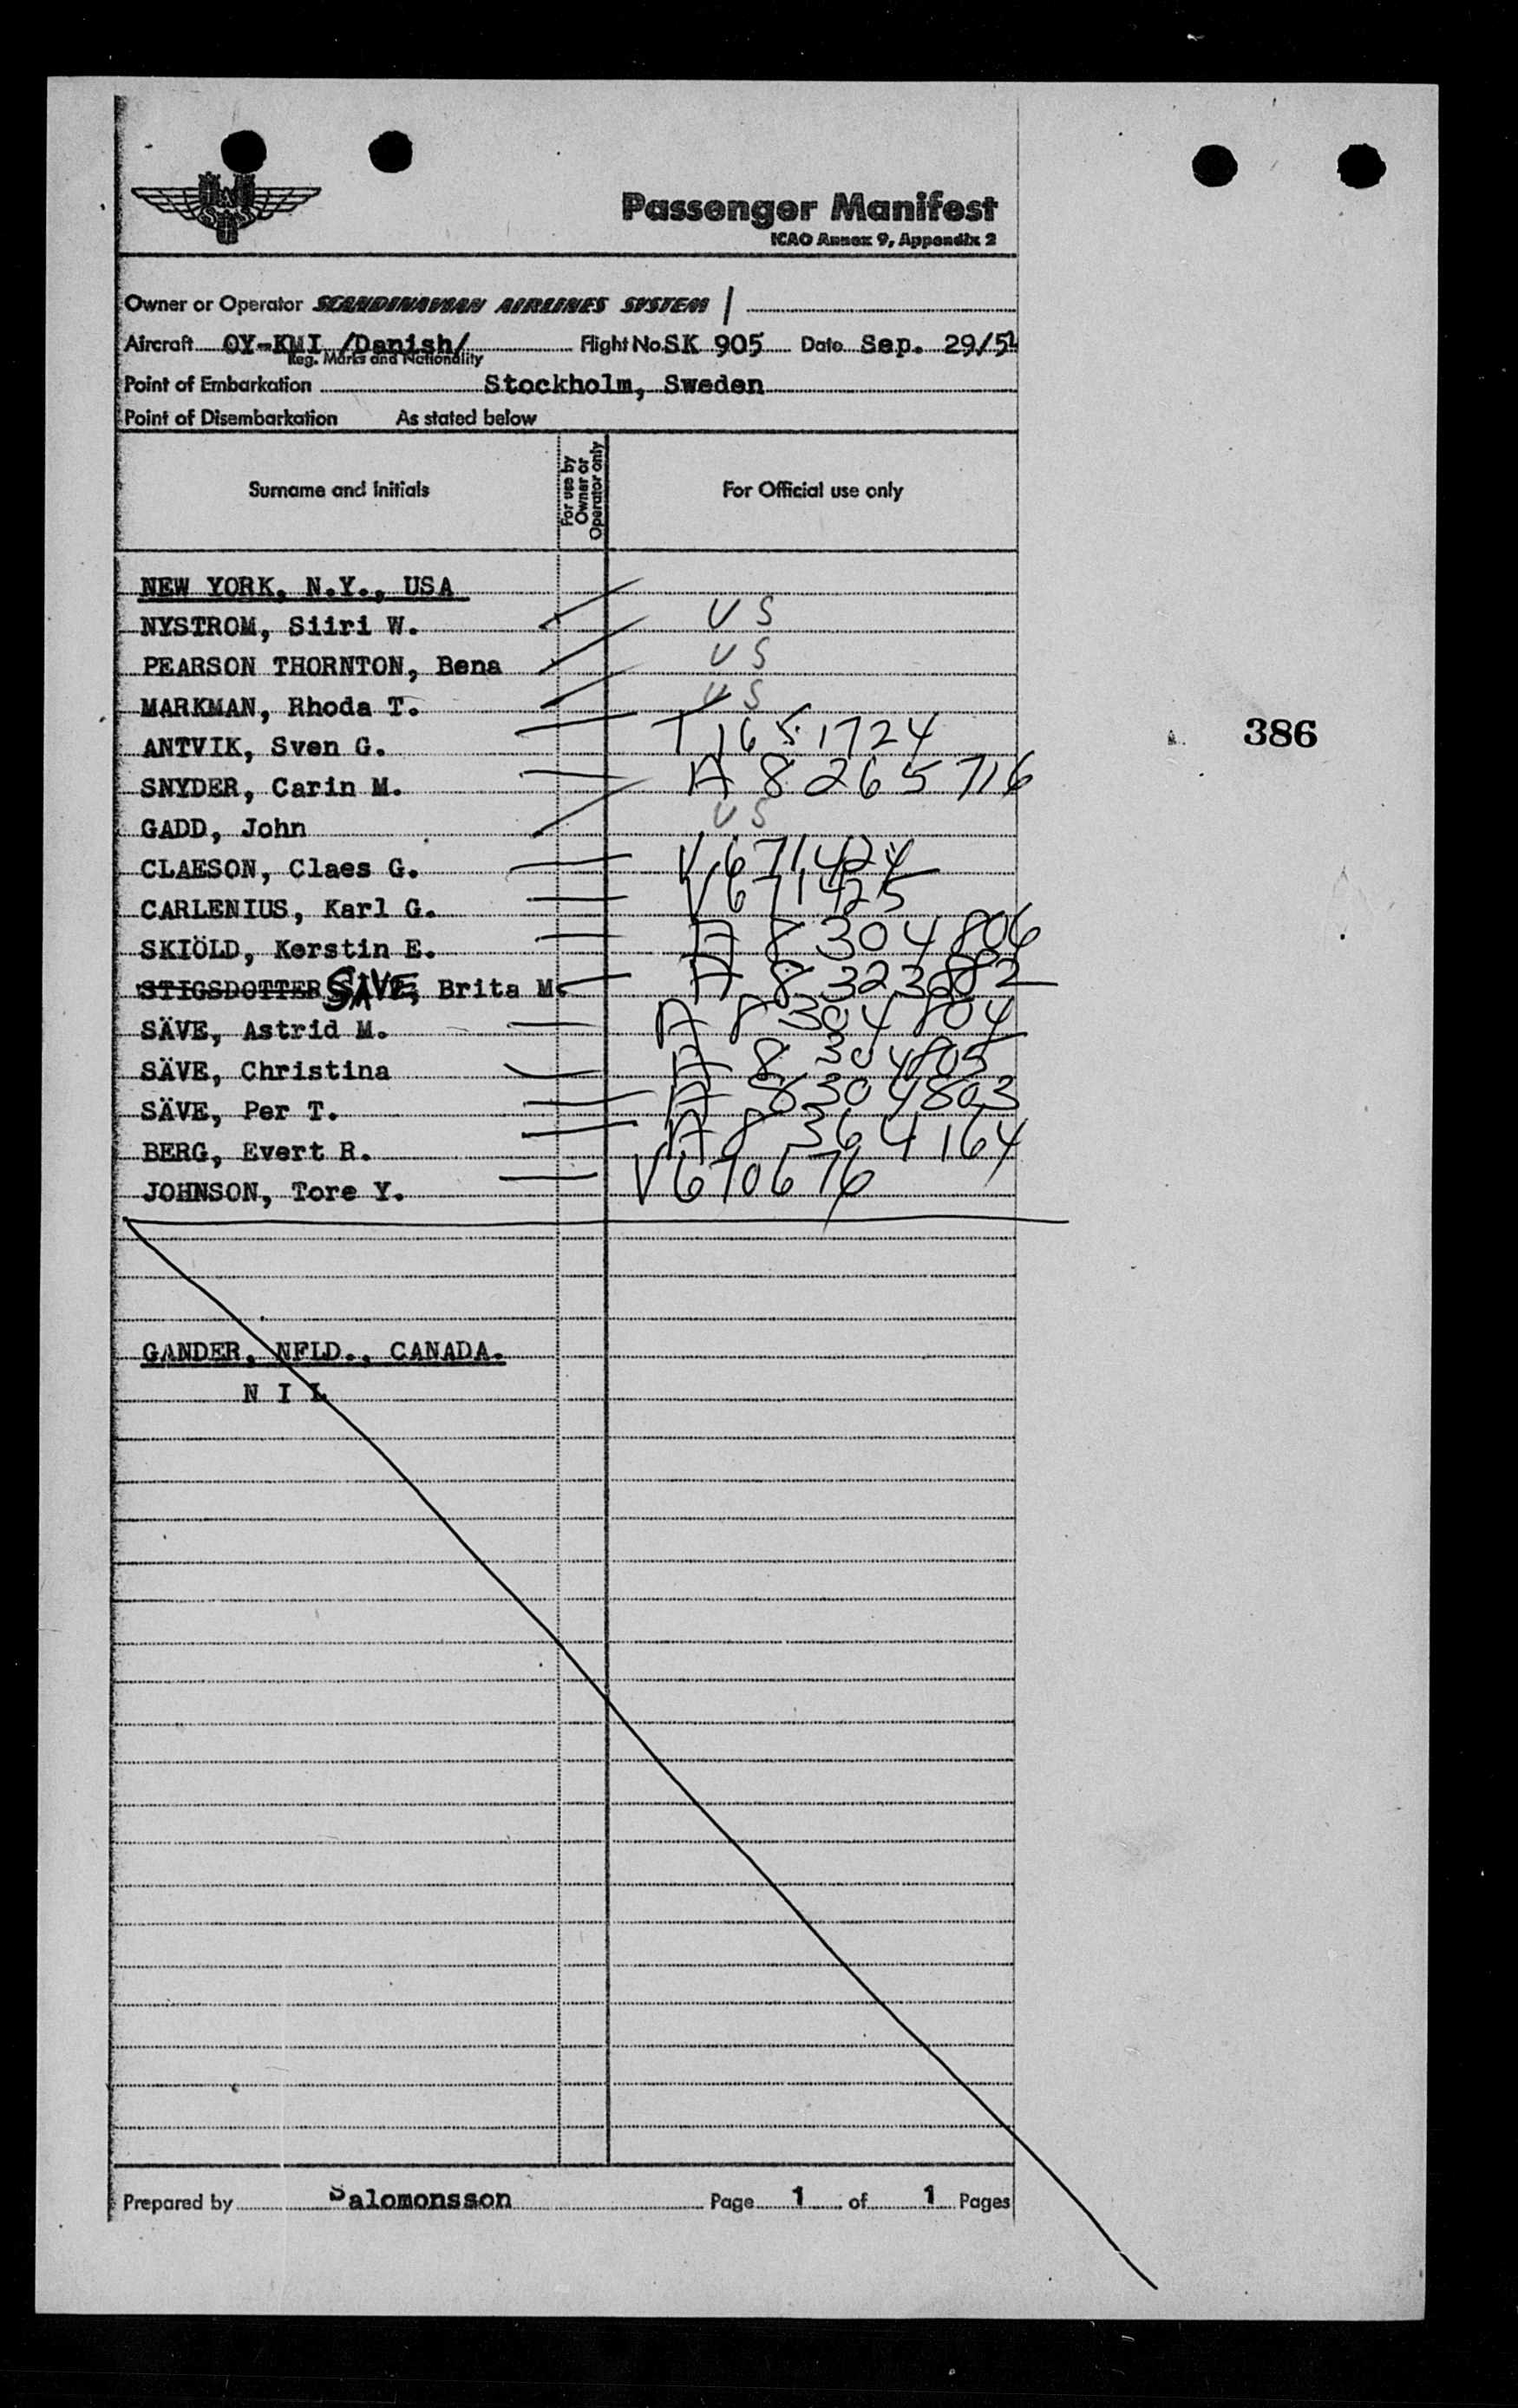 SAS
Passenger Manifest
ICAO Annex 9, Appendix 2
Owner or Operator SCANDINAVIAN AIRLINES SYSTEM
Aircraft OY-KMI /Danish/ Flight No. SK 905 Date Sep. 29/51
Reg. Marks and Nationality
Point of Embarkation Stockholm, Sweden
Point of Disembarkation As stated below
Surname and Initials For use by Owner or Operator only For Official use only
NEW YORK, N.Y., USA
NYSTROM, Siiri W. US
PEARSON THORNTON, Bena US
MARKMAN, Rhoda T. US
ANTVIK, Sven G. T 1651724
386
SNYDER, Carin M. A 8265716
GADD, John US
CLAESON, Claes G. V 671424
CARLENIUS, Karl G. V 671425
SKIÖLD, Kerstin E. A 8304806
STIGSDOTTER SÄVE, Brita M. A 8323882
SÄVE, Astrid M. A 8304804
SÄVE, Christina A 8304805
SÄVE, Per T. A 8304803
BERG, Evert R. A 8364164
JOHNSON, Tore Y. V 670676
GANDER, NFLD., CANADA.
N I L
Prepared by Salomonsson Page 1 of 1 Pages